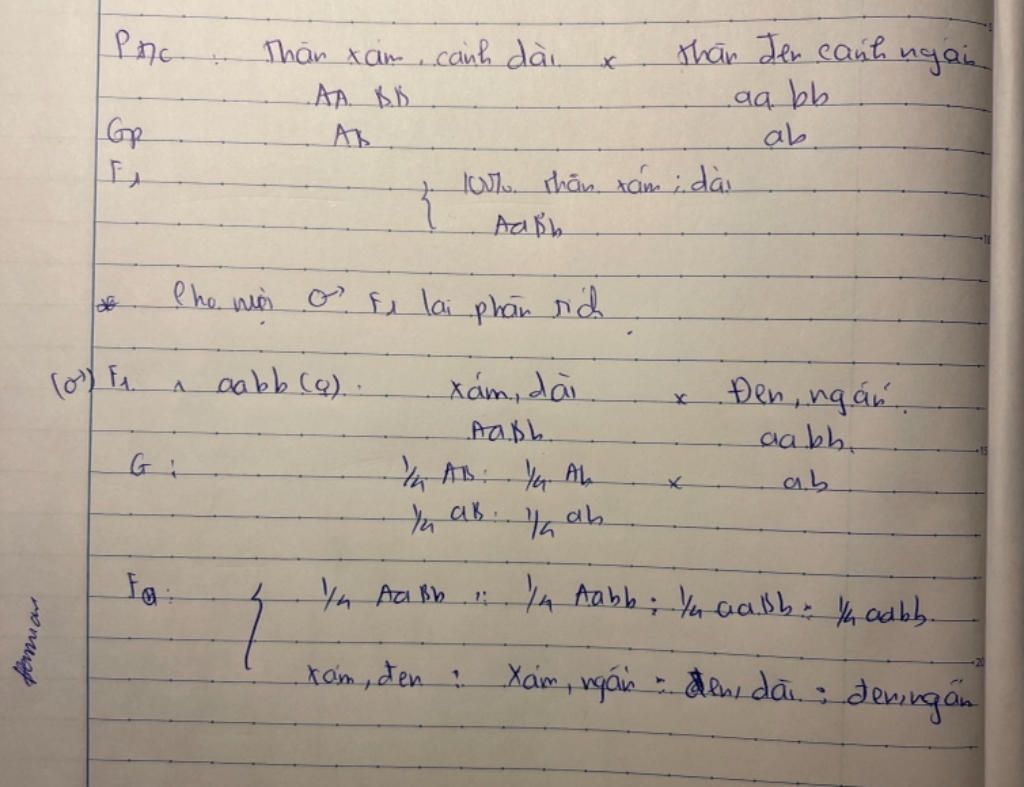 Ptc : Thân xám, cánh dài x thân đen cánh ngắn
AA BB aa bb
Gp AB ab
F1 { 100% thân xám ; dài
AaBb
* Cho ♂ F1 lai phân tích
(♂) F1 x aabb (♀) : xám, dài x Đen, ngắn.
AaBb aabb.
G : 1/4 AB : 1/4 Ab x ab
1/4 aB : 1/4 ab
Fa : { 1/4 AaBb : 1/4 Aabb : 1/4 aaBb : 1/4 aabb.
xám, đen : Xám, ngắn : đen, dài : đen, ngắn